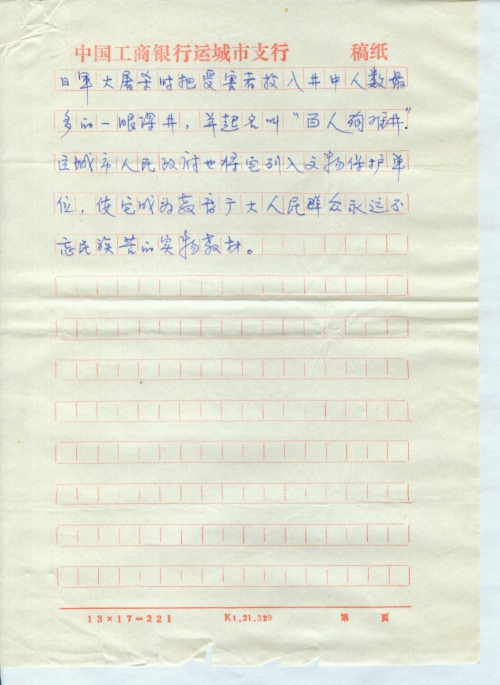 中国工商银行运城市支行 稿纸
日军大屠杀时把受害者投入井中人数最
多的一眼深井，并起名叫“百人殉难井”。
运城市人民政府也将它列入文物保护单
位，使它成为教育广大人民群众永远不
忘民族苦的实物教材。
13×17=221 K1.21.329 第 页